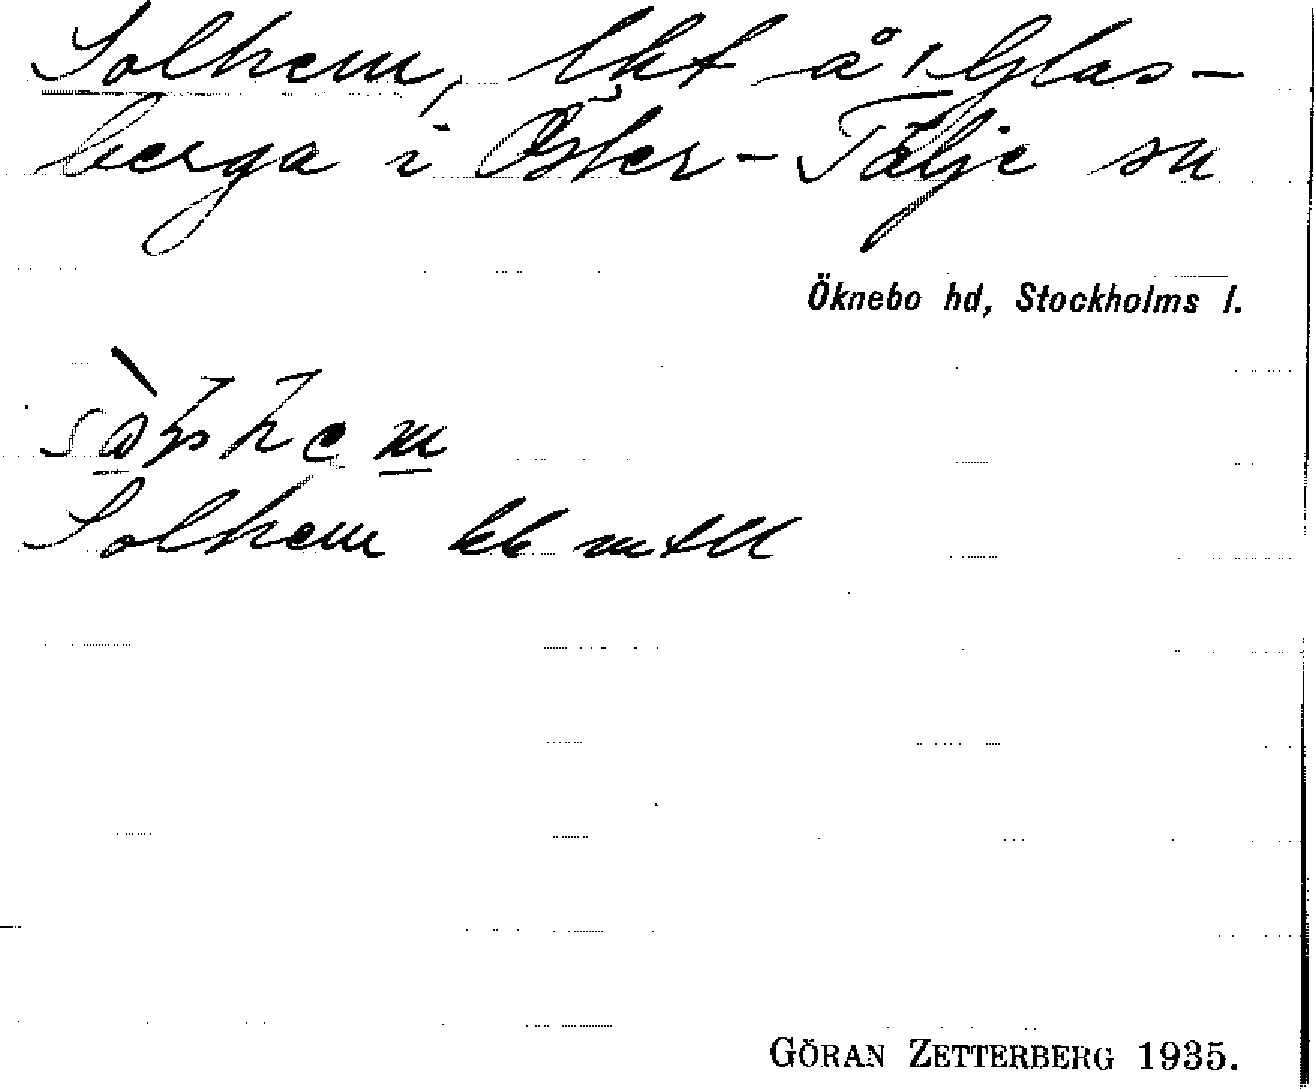 Solhem, lht å 1 Glas-
berga i Öster-Tälje sn
Öknebo hd, Stockholms l.
Solhem
GÖRAN ZETTERBERG 1935.